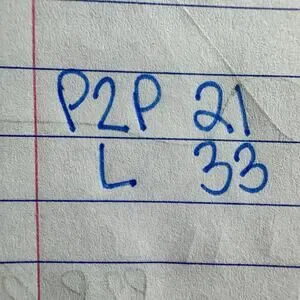 P2P 21
L 33